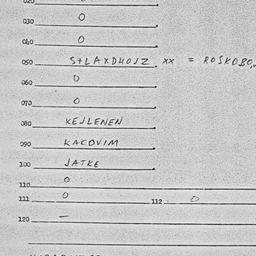 020
030 O
040 O
050 S+LAXDHOJZ xx = ROSKOBO
060 O
070 O
080 KEJLENEN
090 KACOVIM
100 JATKE
110 O
111 O 112 O
120 —